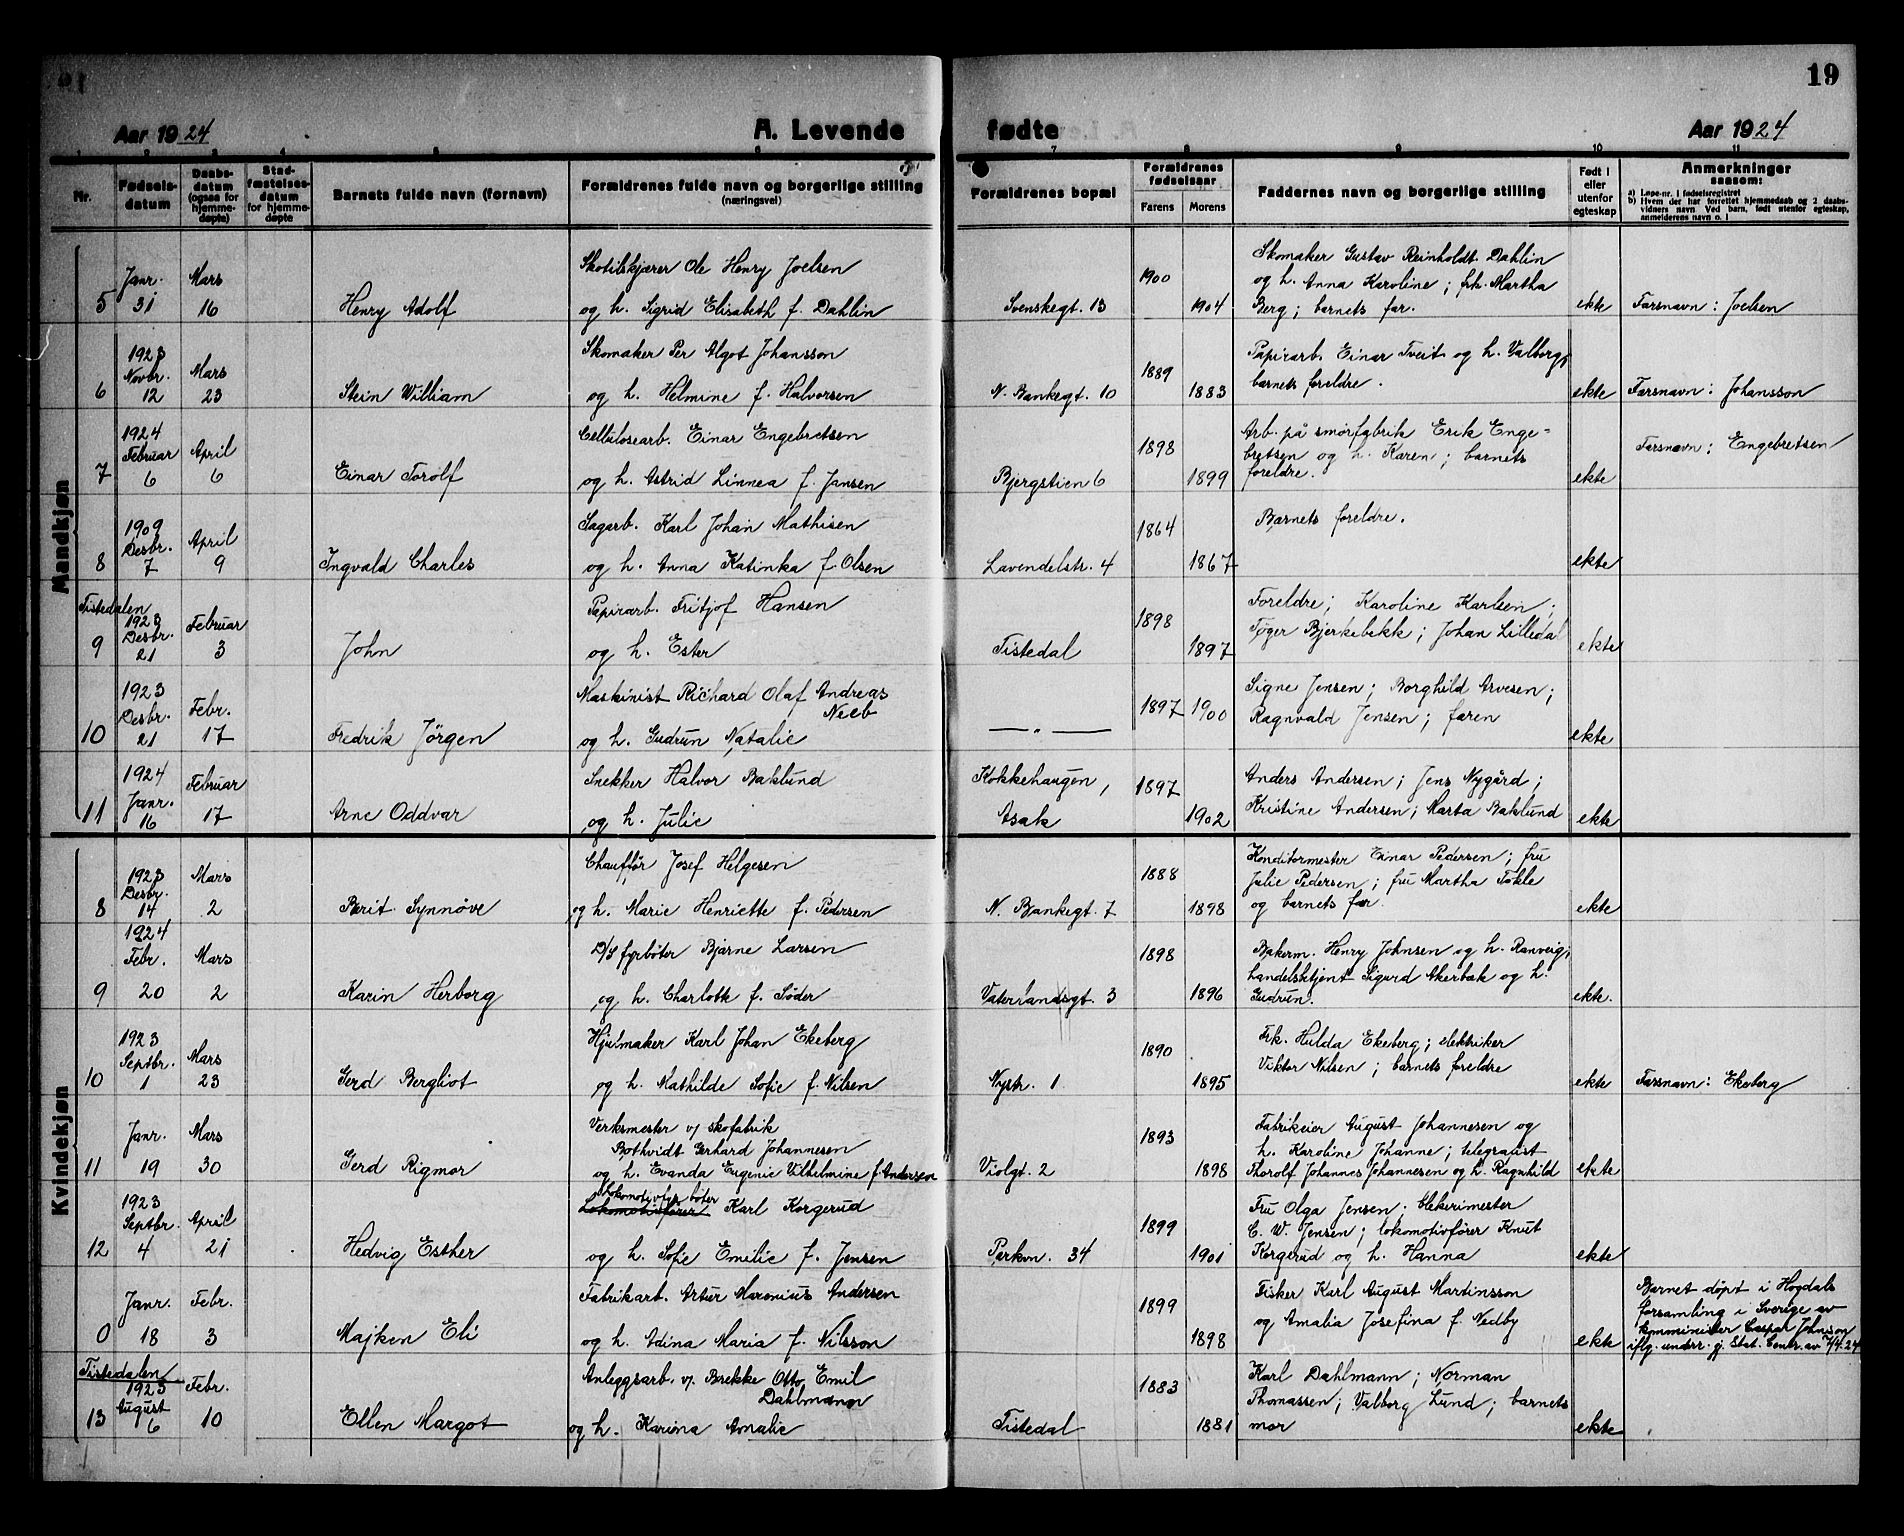 19
Aar 1924
A. Levende
fødte
Aar 1924
1 2 3 4 5 6 7 8 9 10 11
Nr.
Fødsels-
datum
Daabs-
datum
(ogsaa for
hjemme-
døpte)
Stad-
fæstelses-
datum
for hjemme-
døpte
Barnets fulde navn (fornavn)
Forældrenes fulde navn og borgerlige stilling
(næringsvei)
Forældrenes bopæl
Forældrenes
fødselsaar
Farens
Morens
Faddernes navn og borgerlige stilling
Født i
eller
utenfor
egteskap
Anmerkninger
saasom:
a) Løpe-nr. i fødselsregistret
b) Hvem der har forrettet hjemmedaab og 2 daabs-
vidners navn. Ved barn, født utenfor egteskap,
anmelderens navn o. l
Mandkjøn
5
Janr.
31
Mars
16
Henry Adolf
Skotilskjærer Ole Henry Joelsen
og h. Sigrid Elisabeth f. Dahlin
Svenskegt. 13
1900
1904
Skomaker Gustav Reinholdt Dahlin
og h. Anna Karoline; frk. Martha
Berg; barnets far.
ekte
Farsnavn: Joelsen
6
1923
Novbr.
12
Mars
23
Stein William
Skomaker Per Algot Johansson
og h. Helmine f. Halvorsen
N. Bankegt. 10
1889
1883
Papirarb. Einar Tveit og h. Valborg;
barnets foreldre.
ekte
Farsnavn: Johansson
7
1924
Februar
6
April
6
Einar Torolf
Cellulosearb. Einar Engebretsen
og h. Astrid Linnea f. Jansen
Bjergstien 6
1898
1899
Arb. på smørfabrik Erik Enge-
bretsen og h. Karen; barnets
foreldre.
ekte
Farsnavn: Engebretsen
8
1909
Desbr.
7
April
9
Ingvald Charles
Sagarb. Karl Johan Mathisen
og h. Anna Katinka f. Olsen
Lavendelstr. 4
1864
1867
Barnets foreldre.
ekte
Tistedalen
9
1923
Desbr.
21
Februar
3
John
Papirarb. Fritjof Hansen
og h. Ester
Tistedal
1898
1897
Foreldre; Karoline Karlsen;
Tøger Bjerkebekk; Johan Lilledal
ekte
10
1923
Desbr.
21
Febr.
17
Fredrik Jörgen
Maskinist Richard Olaf Andreas
Neeb
og h. Gudrun Natalie
— " —
1897
1900
Signe Jensen; Borghild Arvesen;
Ragnvald Jensen; faren
ekte
11
1924
Janr.
16
Februar
17
Arne Oddvar
Snekker Halvor Baklund
og h. Julie
Kokkehaugen,
Asak
1897
1902
Anders Andersen; Jens Nygård;
Kristine Andersen; Marta Baklund
ekte
Kvindekjøn
8
1923
Desbr.
14
Mars
2
Berit Synnöve
Chauffør Josef Helgesen
og h. Marie Henriette f. Pedersen
N. Bankegt. 7
1888
1898
Konditormester Einar Pedersen; fru
Julie Pedersen; fru Martha Tokle
og barnets far.
ekte
9
1924
Febr.
20
Mars
2
Karin Herborg
D/S fyrbøter Bjarne Larsen
og h. Charlotte f. Söder
Vaterlandsgt. 3
1898
1896
Bakerm. Henry Johnsen og h. Ranveig;
handelsbetjent Sigurd Akerbæk og h.
Gudrun.
ekte.
10
1923
Septbr.
1
Mars
23
Gerd Bergliot
Hjulmaker Karl Johan Ekeberg
og h. Mathilde Sofie f. Nilsen
Nystr. 1
1890
1895
Frk. Hulda Ekeberg; elektriker
Viktor Nilsen; barnets foreldre
ekte
Farsnavn: Ekeberg
11
Janr.
19
Mars
30
Gerd Rigmor
Verksmester v/ skofabrik
Bothvidt Gerhard Johannesen
og h. Evanda Eugenie Vilhelmine f. Anderson
Violgt. 2
1893
1898
Fabrikeier August Johannesen og
h. Karoline Johanne; telegrafist
Thorolf Johannes Johannesen og h. Ragnhild
ekte
12
1923
Septbr.
4
April
21
Hedvig Esther
Lokomotivfyrbøter
Lokomotivfører Karl Korgerud
og h. Sofie Emilie f. Jensen
Perkvn. 34
1899
1901
Fru Olga Jensen; blekerimester
C. W. Jensen; lokomotivfører Knut
Korgerud og h. Hanna
ekte
0
Janr.
18
Febr.
3
Majken Eli
Fabrikarb. Artur Maronius Andersen
og h. Adina Maria f. Nilsson
1899
1898
Fisker Karl August Martinsson
og Amalia Josefina f. Nedby
ekte
Barnet döpt i Hogdals
forsamling i Sverige av
komminister Caspar Johnson
iflg. underr. gj. Stat. Centr. av 7/4.24
Tistedalen
13
1923
August
6
Febr.
10
Ellen Margot
Anleggsarb. v/ Brekke Otto Emil
Dahlmann
og h. Karina Amalie
Tistedal
1883
1881
Karl Dahlmann; Norman
Thomassen; Valborg Lund; barnets
mor
ekte